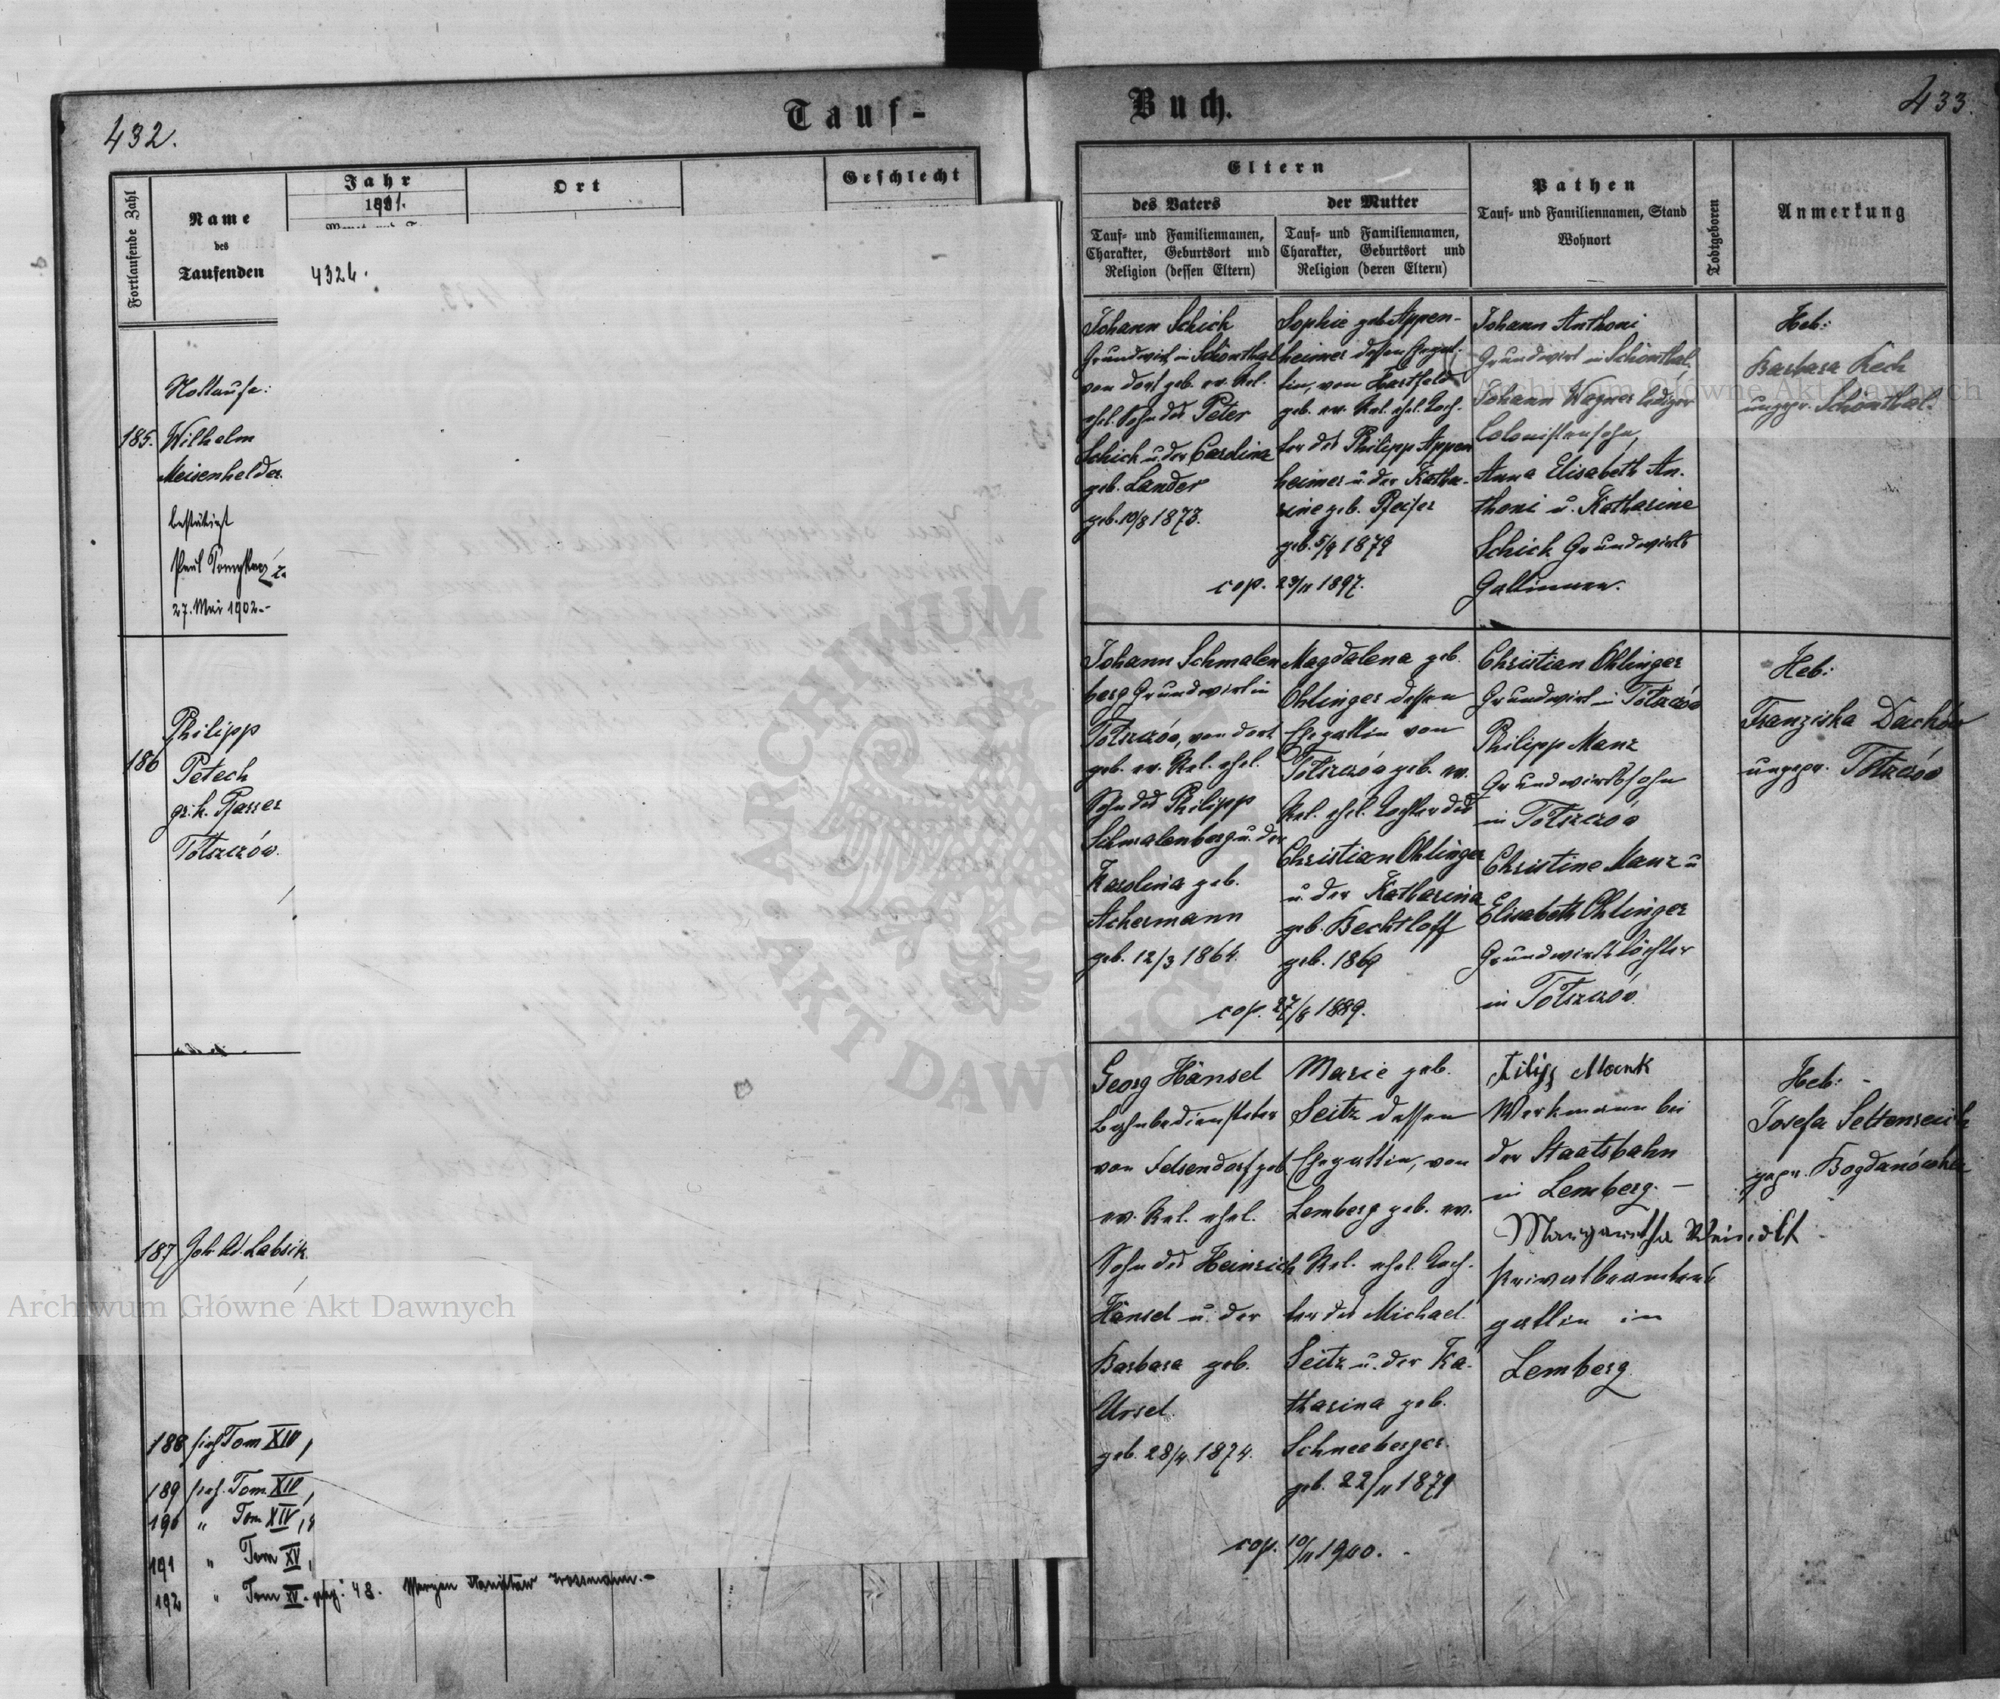 432.
Tauf-
Fortlaufende Zahl
Name
des
Taufenden
Jahr
1901.
Ort
Geschlecht
432b.
Nottaufe:
185.
Wilhelm
Meisenhelder
bestätigt
Paul
27. Mai 1902.-
186
Philipp
Petech
gr. k. Pfarrer
Tołszczów.
187
Joh. Ad. Labsik
188 sieh Tom XIV,
189 sieh. Tom XIV,
190 " Tom XIV,
191 " Tom XV,
192 " Tom XV. pag. 48. Maryan Stanisław Grossmann.-
Buch.
433.
Eltern
des Vaters
Tauf- und Familiennamen,
Charakter, Geburtsort und
Religion (dessen Eltern)
der Mutter
Tauf- und Familiennamen,
Charakter, Geburtsort und
Religion (deren Eltern)
Pathen
Tauf- und Familiennamen, Stand
Wohnort
Todtgeboren
Anmerkung
Johann Schick
Grundwirt in Schönthal
von dort geb. ev. Rel.
ehel. Sohn des Peter
Schick u. der Carolina
geb. Lander
geb. 10/8 1873.
Sophie geb. Appen-
heimer dessen Ehegat-
tin, von Hartfeld
geb. ev. Rel. ehel. Toch-
ter des Philipp Appen
heimer u. der Katha-
rine geb. Pfeifer
geb. 5/9 1879
cop. 23/11 1897.
Johann Anthoni
Grundwirt in Schönthal,
Johann Wagner lediger
Colonistensohn,
Anna Elisabeth An-
thoni u. Katharine
Schick Grundwirts
Gattinnen.
Heb:
Barbara Kech
ungepr. Schönthal.
Johann Schmalen
berg Grundwirt in
Tołszczów, von dort
geb. ev. Rel. ehel.
Sohn des Philipp
Schmalenberg u. der
Karolina geb.
Ackermann
geb. 12/3 1864.
Magdalena geb.
Ohlinger dessen
Ehegattin von
Tołszczów geb. ev.
Rel. ehel. Tochter des
Christian Ohlinger
u. der Katharina
geb. Bechtloff
geb. 1869
cop. 27/8 1889.
Christian Ohlinger
Grundwirt in Tołszczów
Philipp Manz
Grundwirtssohn
in Tołszczów
Christine Manz u
Elisabeth Ohlinger
Grundwirtstöchter
in Tołszczów.
Heb:
Franziska Dachów
ungepr. Tołszczów
Georg Hänsel
Bahnbediensteter
von Felsendorf geb.
ev. Rel. ehel.
Sohn des Heinrich
Hänsel u. der
Barbara geb.
Ursel.
geb. 28/4. 1874.
Marie geb.
Seitz dessen
Ehegattin, von
Lemberg geb. ev.
Rel. ehel. Toch-
ter des Michael
Seitz u. der Ka-
tharina geb.
Schneeberger.
geb. 22/11 1879
cop. 10/11 1900.
Filipp Mank
Werkmann bei
der Staatsbahn
in Lemberg. -
Margaretha
Privatbeamtens
gattin in
Lemberg.
Heb: -
Josefa Settenreich
gepr. Bogdanówka
Archiwum Główne Akt Dawnych
Archiwum Główne Akt Dawnych
ARCHIWUM GŁÓWNE
AKT DAWNYCH